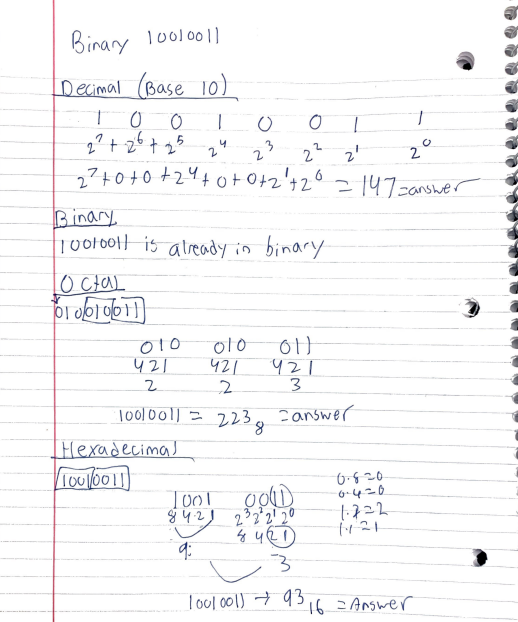 Binary 10010011
Decimal (Base 10)
1 0 0 1 0 0 1 1
2⁷ + 2⁶ + 2⁵ 2⁴ 2³ 2² 2¹ 2⁰
2⁷ + 0 + 0 + 2⁴ + 0 + 0 + 2¹ + 2⁰ = 147 = answer
Binary
10010011 is already in binary
Octal
010010011
010 010 011
421 421 421
2 2 3
10010011 = 223₈ = answer
Hexadecimal
10010011
0.8=0
0.4=0
1.2=2
1.1=1
1001 0011
8421 2³2²2¹2⁰
8421
9 3
10010011 → 93₁₆ = Answer